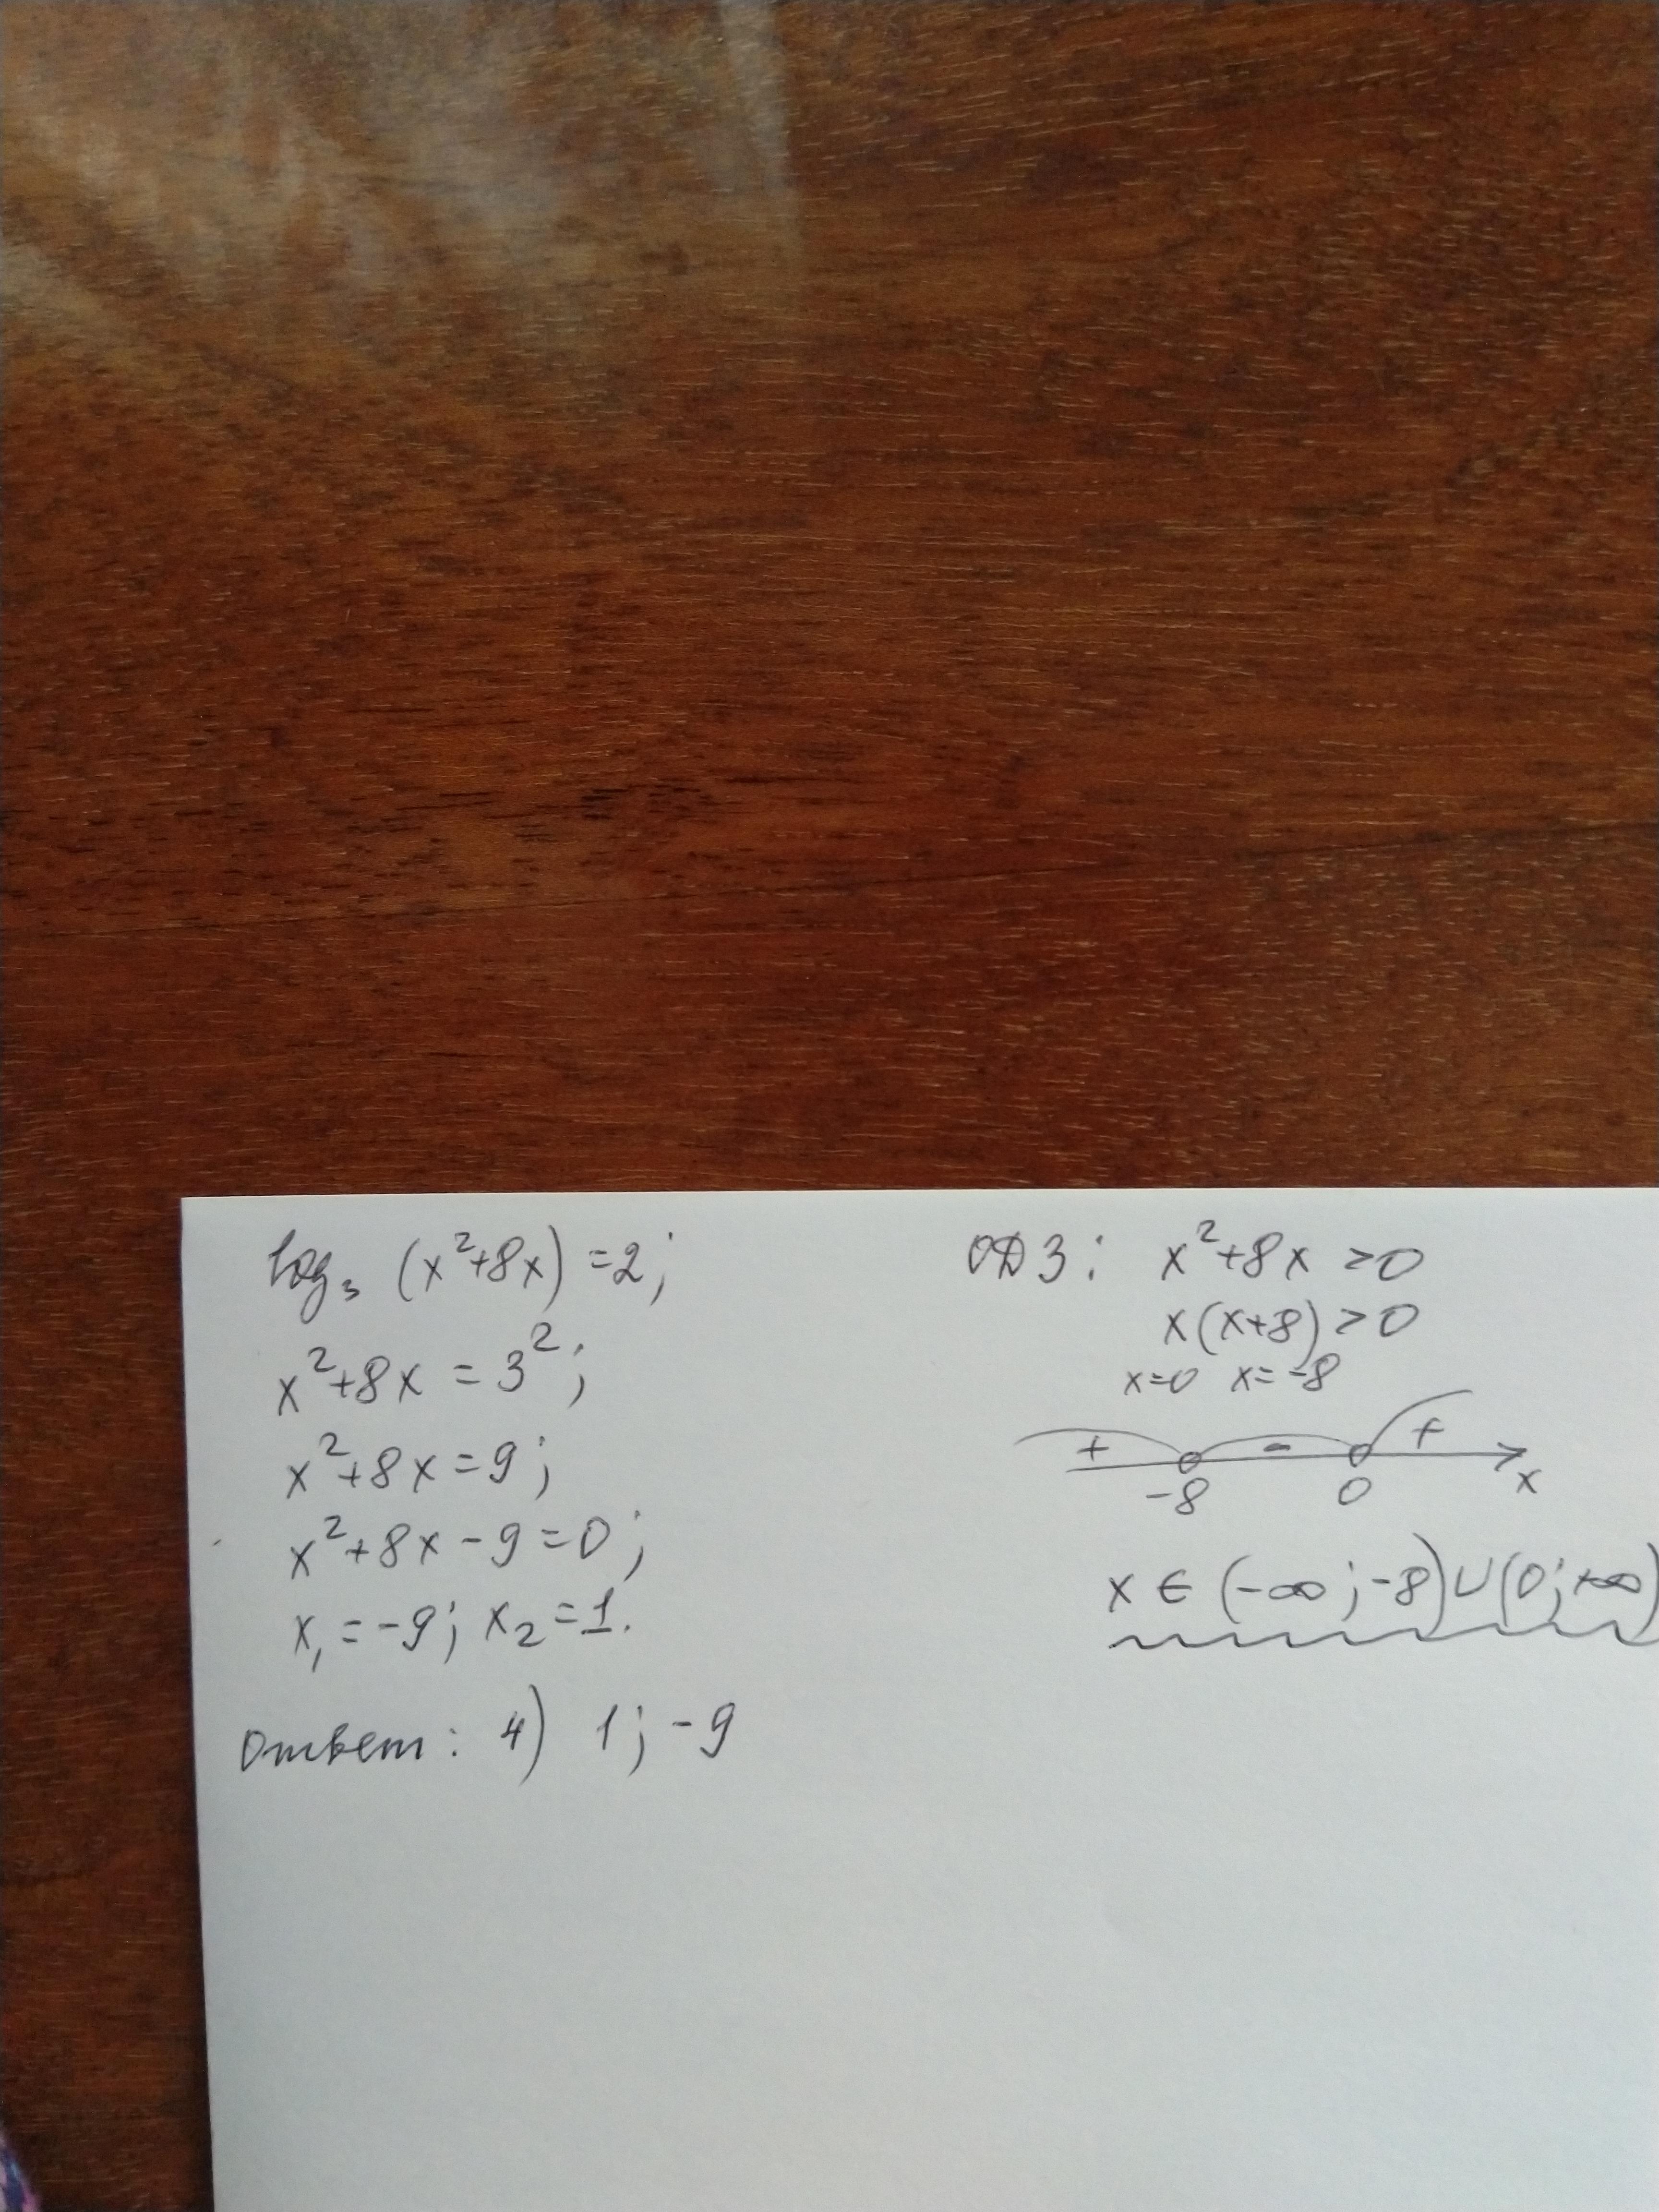 log₃ (x²+8x) =2;
x²+8x = 3²;
x²+8x=9;
x²+8x-9=0;
x₁=-9; x₂=1.
Ответ: 4) 1; -9
ОДЗ: x²+8x >0
x(x+8)>0
x=0 x=-8
+ - +
-8 0 x
x ∈ (-∞; -8)∪(0; +∞)